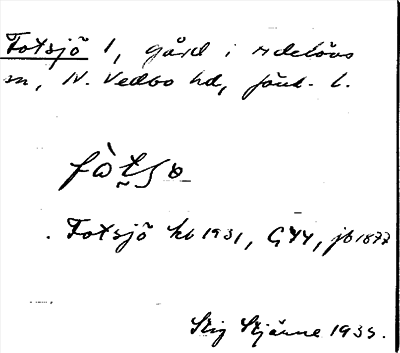 Fotsjö 1, gård i Adelövs
sn, N. Vedbo hd, Jönk. l.
fòtʃə
Fotsjö kb 1931, GEK, jb 1877
Stig Stjärne 1935.